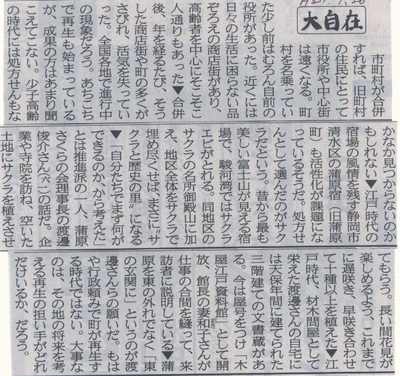 大自在
市町村が合併
すれば、旧町村
の住民にとって
市役所や中心街
は遠くなる。町
村を名乗ってい
た少し前はむろん自前の
役所があった。近くには
日々の生活に困らない品
ぞろえの商店街があり、
高齢者を中心にそこそこ
人通りもあった◆合併
後、年を経るたび、そう
した商店街や町の多くが
さびれ、活気を失ってい
った。全国各地で進行中
の現象だろう。あちこち
で再生も始まっている
が、成果の方はあまり聞
こえてこない。少子高齢
の時代には処方せんもな
かなか見つからないのか
もしれない◆江戸時代の
宿場の風情を残す静岡市
清水区の蒲原宿（旧蒲原
町）も活性化が課題にな
っているそうだ。処方せ
んとして選んだのがサク
ラだという。昔から最も
美しい富士山が見える宿
場で、駿河湾ではサクラ
エビがとれる。同地区の
サクラの名所御殿山に加
え、地区全体をサクラで
埋め尽くせば、まさに“サ
クラと歴史の里”になる
◆「自分たちでまず何が
できるのか、から考えた」
とは推進派の一人、蒲原
さくらの会理事長の渡邊
俊介さんの話だ。企
業や寺院を訪ね、空いた
土地にサクラを植えさせ
てもらう。長い間花見が
楽しめるよう、これまで
に遅咲き、早咲き合わせ
て十種以上を植えた◆江
戸時代、材木問屋として
栄えた渡邊さんの自宅に
は天保年間に建てられた
三階建ての文書蔵があ
る。今は屋号をつけ「木
屋江戸資料館」として開
放、館長の妻和子さんが
仕事の合間を縫って、来
訪者に説明している◆蒲
原を東の外れでなく「東
の玄関に」というのが渡
邊さんの願いだ。もは
や行政頼みで町が再生す
る時代ではない。大事な
のは、その地の将来を考
える再生の担い手がどれ
だけいるか、だろう。